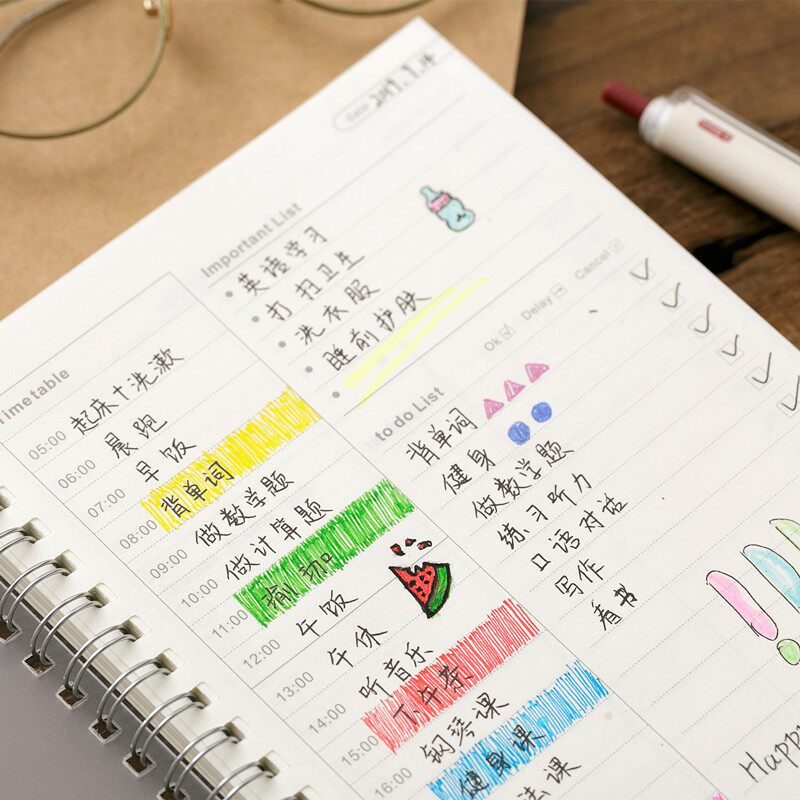 DATE
Important List
英语学习
打扫卫生
洗衣服
睡前护肤
Ok Delay Cancel
to do List
背单词
健身
做数学题
练习听力
日语对话
写作
看书
Happy
Timetable
05:00 起床+洗漱
06:00 晨跑
07:00 早饭
08:00 背单词
09:00 做数学题
10:00 做计算题
11:00 瑜珈
12:00 午饭
13:00 午休
14:00 听音乐
15:00 下午茶
16:00 钢琴课
健身课
法课